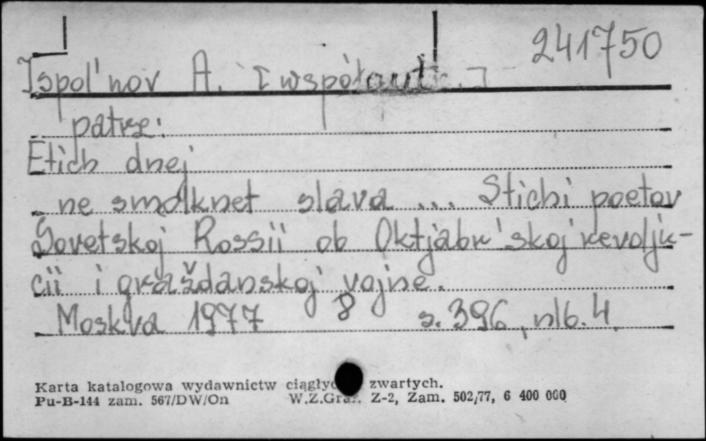 241750
Ispol'nov A. [współaut.]
patrz:
Etich dnej
ne smolknet slava ... Stichi poetov
Sovetskoj Rossii ob Oktjabr'skoj revolju-
cii i graždanskoj vojne.
Moskva 1977 8 s. 396, nlb. 4.
Karta katalogowa wydawnictw zwartych.
Pu-B-144 zam. 567/DW/On W.Z.Graf. Z-2, Zam. 502/77, 6 400 000